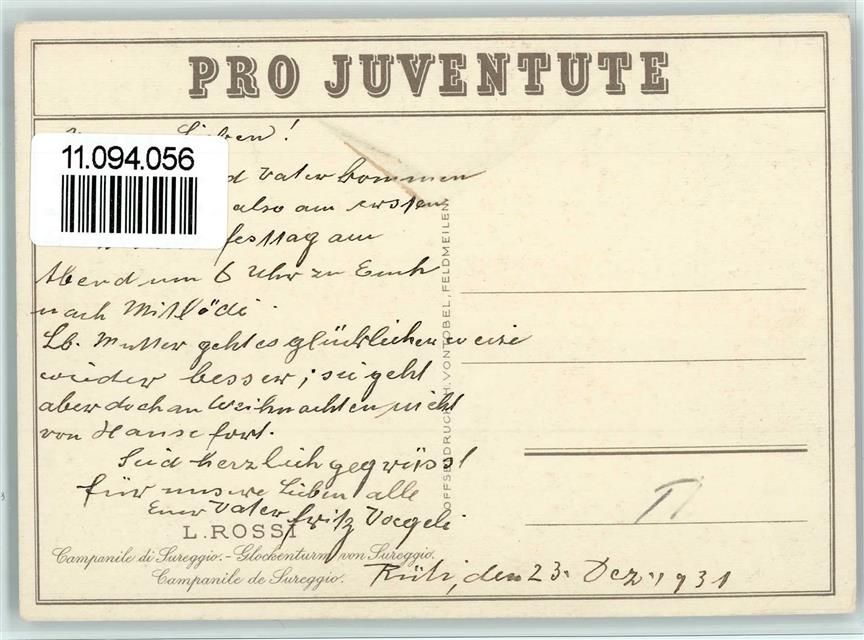 PRO JUVENTUTE
Lieben!
11.094.056
d Vater kommen
also am ersten
festtag am
Abend um 6 Uhr zu Euch
nach Mitlödi.
Lb. Mutter geht es glücklicherweise
wieder besser; sie geht
aber doch an Weihnachten nicht
von Hause fort.
Seid herzlich gegrüsst
für unsere Lieben alle
Euer Vater Fritz Voegeli
L. ROSSI
Campanile di Sureggio. - Glockenturm von Sureggio.
Campanile de Sureggio.
Rüti, den 23. Dez. 1931
OFFSETDRUCK H. VONTOBEL, FELDMEILEN